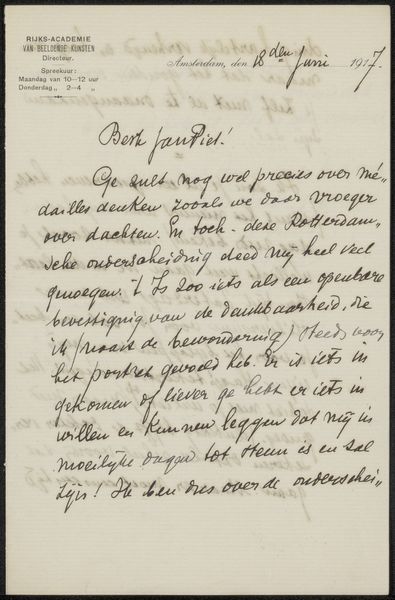 RIJKS-ACADEMIE
VAN BEELDENDE KUNSTEN
Directeur.
Spreekuur:
Maandag van 10–12 uur
Donderdag „ 2–4 „
Amsterdam, den 18den Juni 1917.
Jan Piet!
Ge zult nog wel precies over mé-
dailles denken zooals we daar vroeger
over dachten. En toch - deze Rotterdam-
sche onderscheiding deed mij heel veel
genoegen. 't Is zoo iets als een openbare
bevestiging van de dankbaarheid, die
ik (naast de bewondering) steeds voor
het portret gevoeld heb. Er is iets in
gekomen of liever ge hebt er iets in
willen en kunnen leggen dat mij in
moeilijke dagen tot steun is en zal
zijn! Ik ben dus over de onderschei-